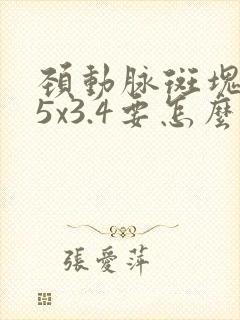 頚動脉斑塊
5x3.4要怎麼
張愛萍